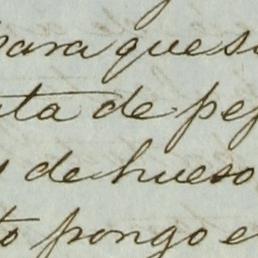 para que s
ta de pe
de hueso
to pongo e